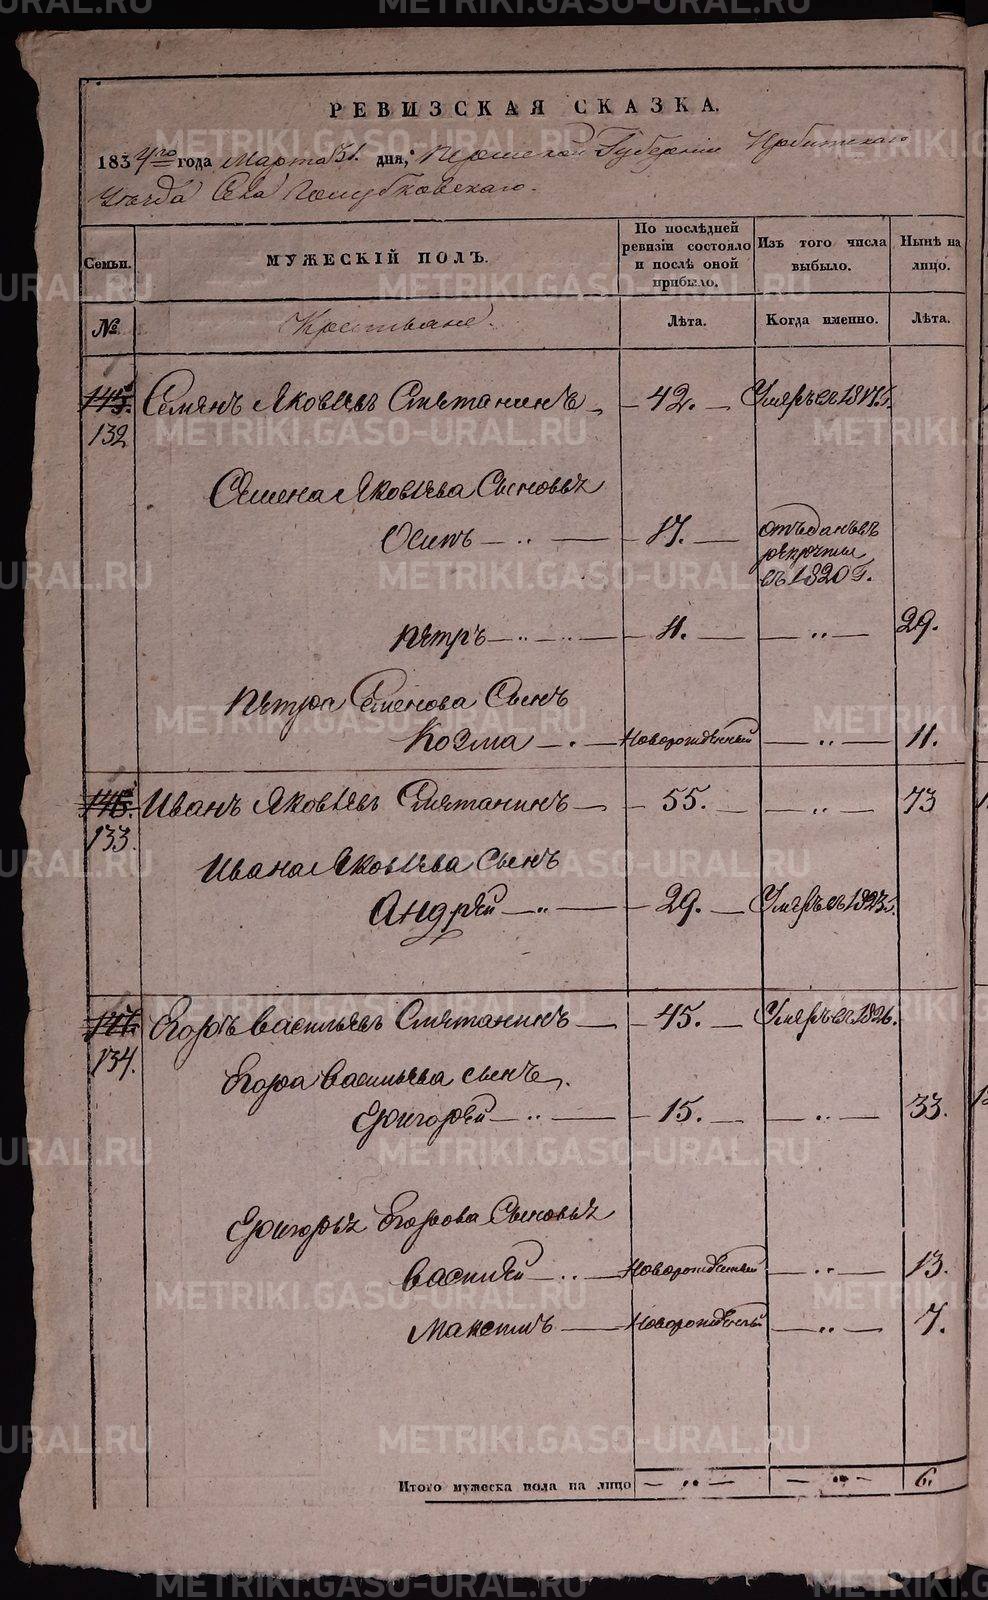 METRIKI.GASO-URAL.RU
РЕВИЗСКАЯ СКАЗКА.
1834го года Марта 31. дня, Пермской Губернiи Ирбитскаго
Уѣзда Села Голубковскаго.
Семьи. МУЖЕСКIЙ ПОЛЪ. По послѣдней ревизiи состояло и послѣ оной прибыло. Изъ того числа выбыло. Нынѣ на лицо.
№ Крестьяне Лѣта. Когда именно. Лѣта.
145. Семенъ Яковлевъ Смѣтанинъ 42. Умеръ въ 1817г.
132
Семена Яковлева Сыновья
Осипъ — „ — 17. — отъданъ въ
рекруты
въ 1820 г.
Петръ — „ — 11. — „ — 29.
Петра Семенова Сынъ
Козма — „ — Новорожденный — „ — 11.
146. Иванъ Яковлевъ Смѣтанинъ — 55. — „ — 73
133.
Ивана Яковлева Сынъ
Андрей — „ — 29. — Умеръ въ 1823г.
147. Егоръ Васильевъ Смѣтанинъ — 45. — Умеръ въ 1826.
134.
Егора Васильева сынъ.
Григорей — „ — 15. — „ — 33.
Григорья Егорова Сыновья
Василей — „ — Новорожденный — „ — 13.
Максимъ — Новорожденный — „ — 7.
Итого мужеска пола на лицо — „ — — „ — 6.